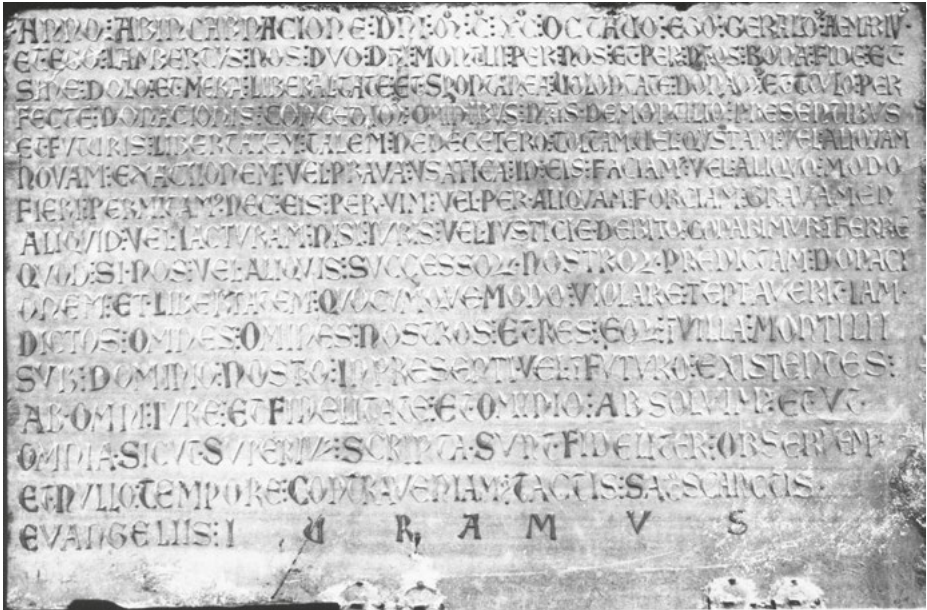 ANNO : AB INCARNACIONE : DNI : M : C : XC : OCTAVO : EGO : GERALD : AEMARIV
ET EGO LAMBERTVS : NOS : DVO : DNI : MONTILII : PER NOS : ET PER : NROS : BONA : FIDE : ET
SINE : DOLO : ET MERA : LIBERALITATE : ET SPONTANEA : VOLONTATE : DONAM : ET TITVLO : PER
FECTE : DONACIONIS : CONCEDIM : OMINIBVS : NRIS : DE MONTILIO : PRESENTIBVS
ET FVTVRIS : LIBERTATEM : TALEM : NE DE CETERO : TOLTAM : VEL QVISTAM : VEL ALIQVAM
NOVAM : EXACTIONEM : VEL PRAVA : VSATICA : IN EIS : FACIAM : VEL ALIQVO : MODO
FIERI : PERMITAM : NEC EIS : PER VIM : VEL PER : ALIQVAM : FORCIAM : GRAVAMEN
ALIQVID : VEL : IACTVRAM : NISI : IVRIS : VEL IVSTICIE DEBITO
QVOD : SI NOS : VEL ALIQVIS : SVCCESSOR : NOSTROR : PREDICTAM : DONACI
ONEM : ET LIBERTATEM : QVOCVMQVE MODO : VIOLARE : TEPTAVERIT : IAM
DICTOS : OMINES : OMINES : NOSTROS : ET RES : EOR : IVILLA : MONTILII
SVB : DOMINIO : NOSTRO : IN PRESENTI : VEL : FVTVRO : EXISTENTES :
AB OMNI : IVRE : ET FIDELITATE : ET OMINIO : ABSOLVIM : ET VT
OMNIA : SICVT : SVPERIV : SCRIPTA : SVNT : FIDELITER : OBSERVEM
ET NVLLO : TEMPORE : CONTRAVENIAM : TACTIS : SACROSCANCTIS
EVANGELIIS : I U R A M V S